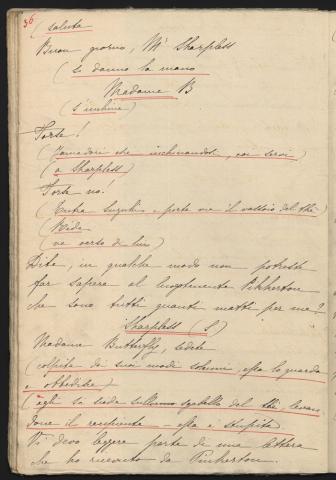 36
(saluta
Buon giorno, Mr Sharpless
(si danno la mano
Madame B
(s'inchina)
Forte!
(Yamadori che inchinandosi, coi servi)
(a Sharpless)
Forte no!
(Entra Suzuki e porta via il vassoio del thè)
(Ride)
(va verso di lui)
Dite, in qualche modo non potreste
far sapere al luogotenente Pinkerton
che sono tutti quanti matti per me?
Sharpless (S)
Madame Butterfly, sedete
(colpita da suoi modi solenni, essa lo guarda
e obbedisce)
(egli si siede sull'uno sgabello del thè, levan
done il recipiente – essa è stupita.
Vi devo leggere parte di una lettera
che ho ricevuto da Pinkerton.